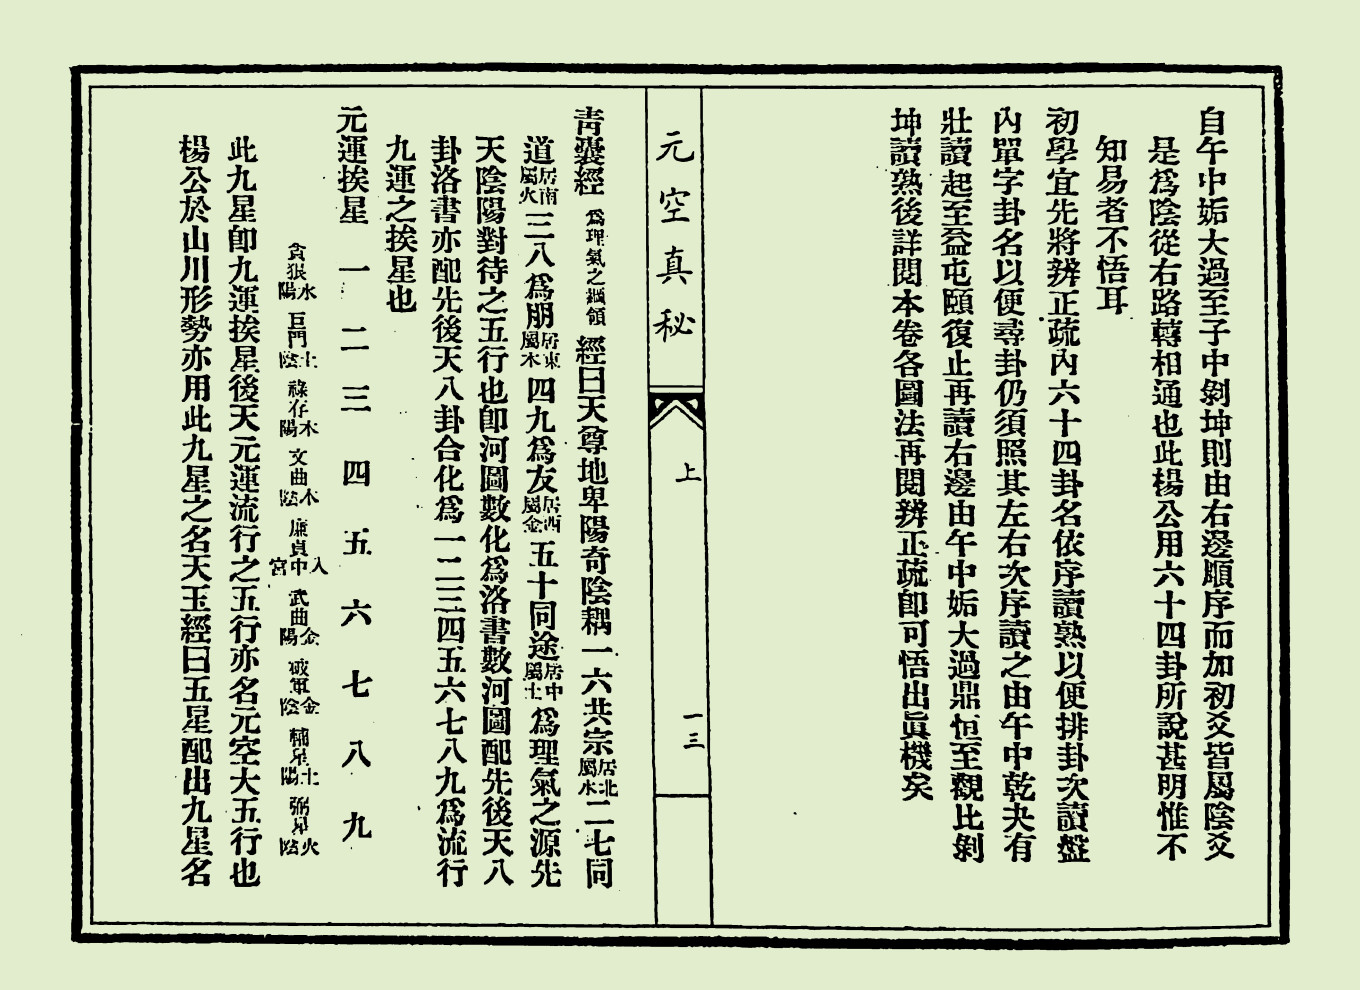 自午中姤大過至子中剝坤則由右邊順序而加初爻皆屬陰爻
是爲陰從右路轉相通也此楊公用六十四卦所說甚明惟不
知易者不悟耳
初學宜先將辨正疏內六十四卦名依序讀熟以便排卦次讀盤
內單字卦名以便尋卦仍須照其左右次序讀之由午中乾夬有
壯讀起至益屯頤復止再讀右邊由午中姤大過鼎恒至觀比剝
坤讀熟後詳閱本卷各圖法再閱辨正疏卽可悟出眞機矣
元空真秘
上
一三
青囊經 爲理氣之綱領 經曰天尊地卑陽奇陰耦一六共宗居北屬水二七同
道居南屬火三八爲朋居東屬木四九爲友居西屬金五十同途居中屬土爲理氣之源先
天陰陽對待之五行也卽河圖數化爲洛書數河圖配先後天八
卦洛書亦配先後天八卦合化爲一二三四五六七八九爲流行
九運之挨星也
元運挨星 一 二 三 四 五 六 七 八 九
貪狼水陽 巨門土陰 祿存木陽 文曲木陰 廉貞入中宮 武曲金陽 破軍金陰 輔星土陽 弼星火陰
此九星卽九運挨星後天元運流行之五行亦名元空大五行也
楊公於山川形勢亦用此九星之名天玉經曰五星配出九星名